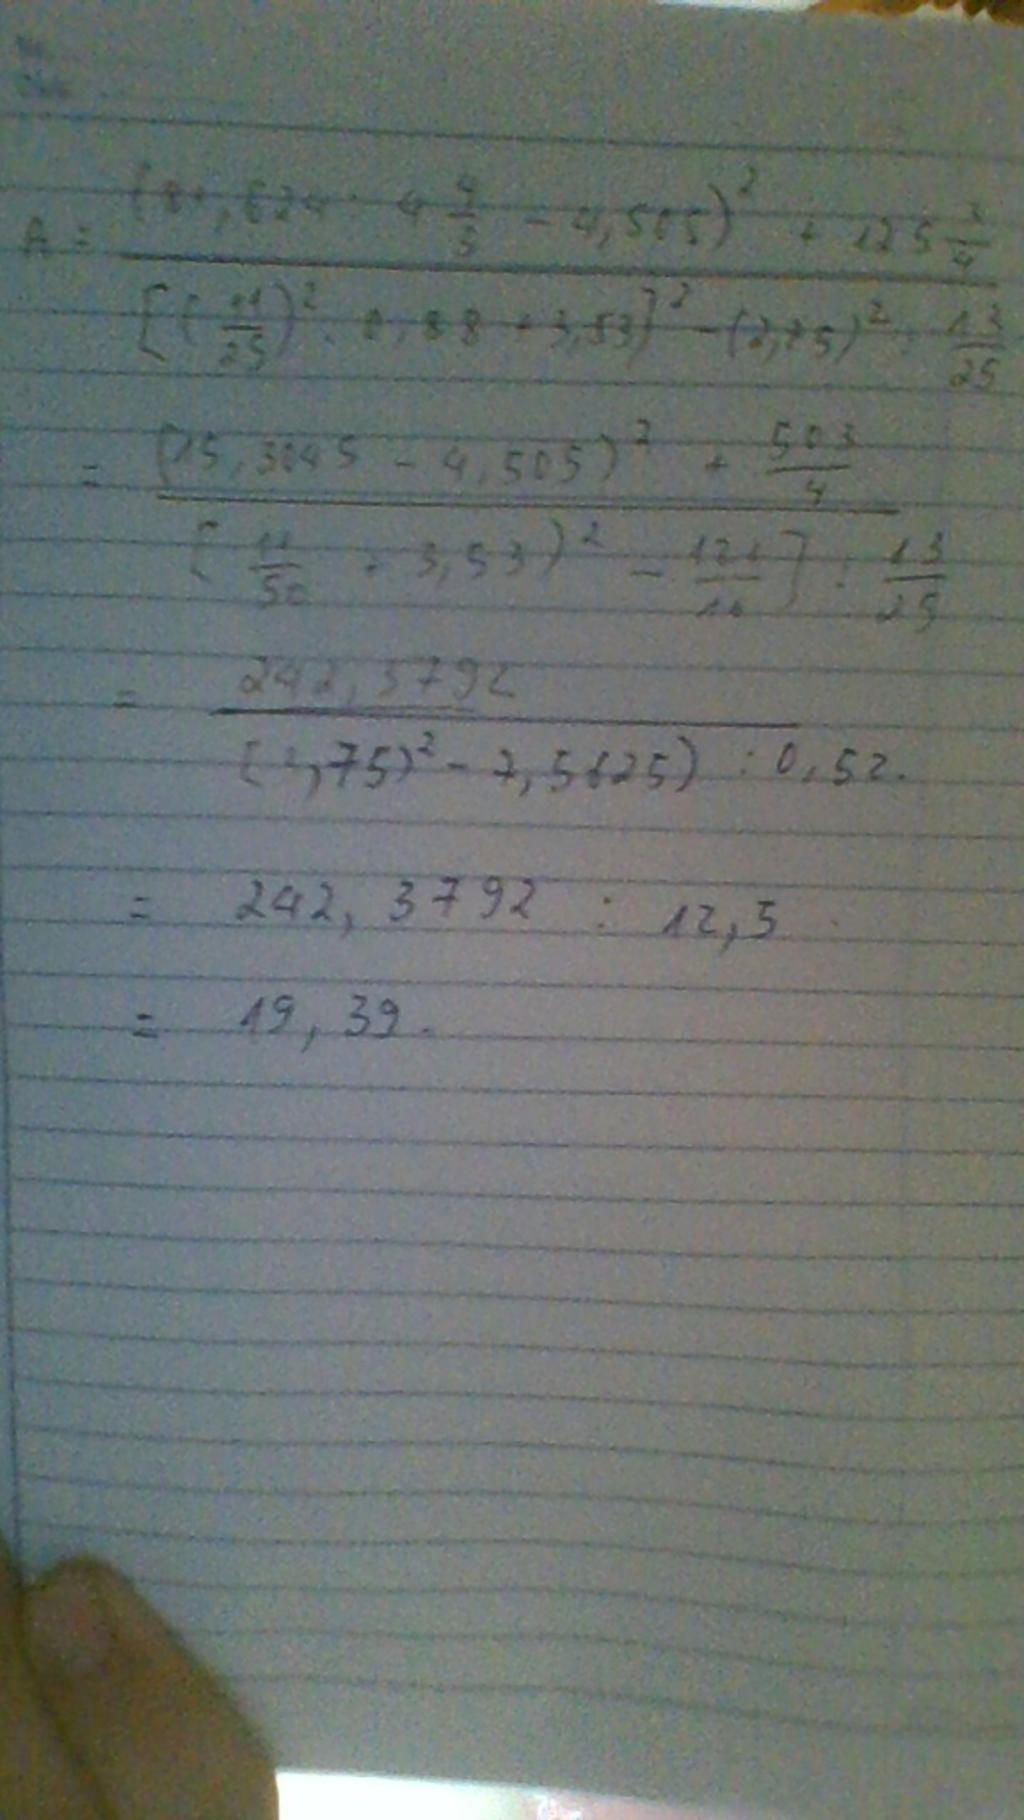 A = (81,624 : 4 4/3 - 4,505)² + 125 3/4
[(11/25)² : 0,88 + 3,53]² - (2,75)² : 13/25
= (15,3045 - 4,505)² + 503/4
[11/50 + 3,53)² - 121/16] : 13/25
= 242,3792
(3,75)² - 7,5625) : 0,52.
= 242,3792 : 12,5
= 19,39.